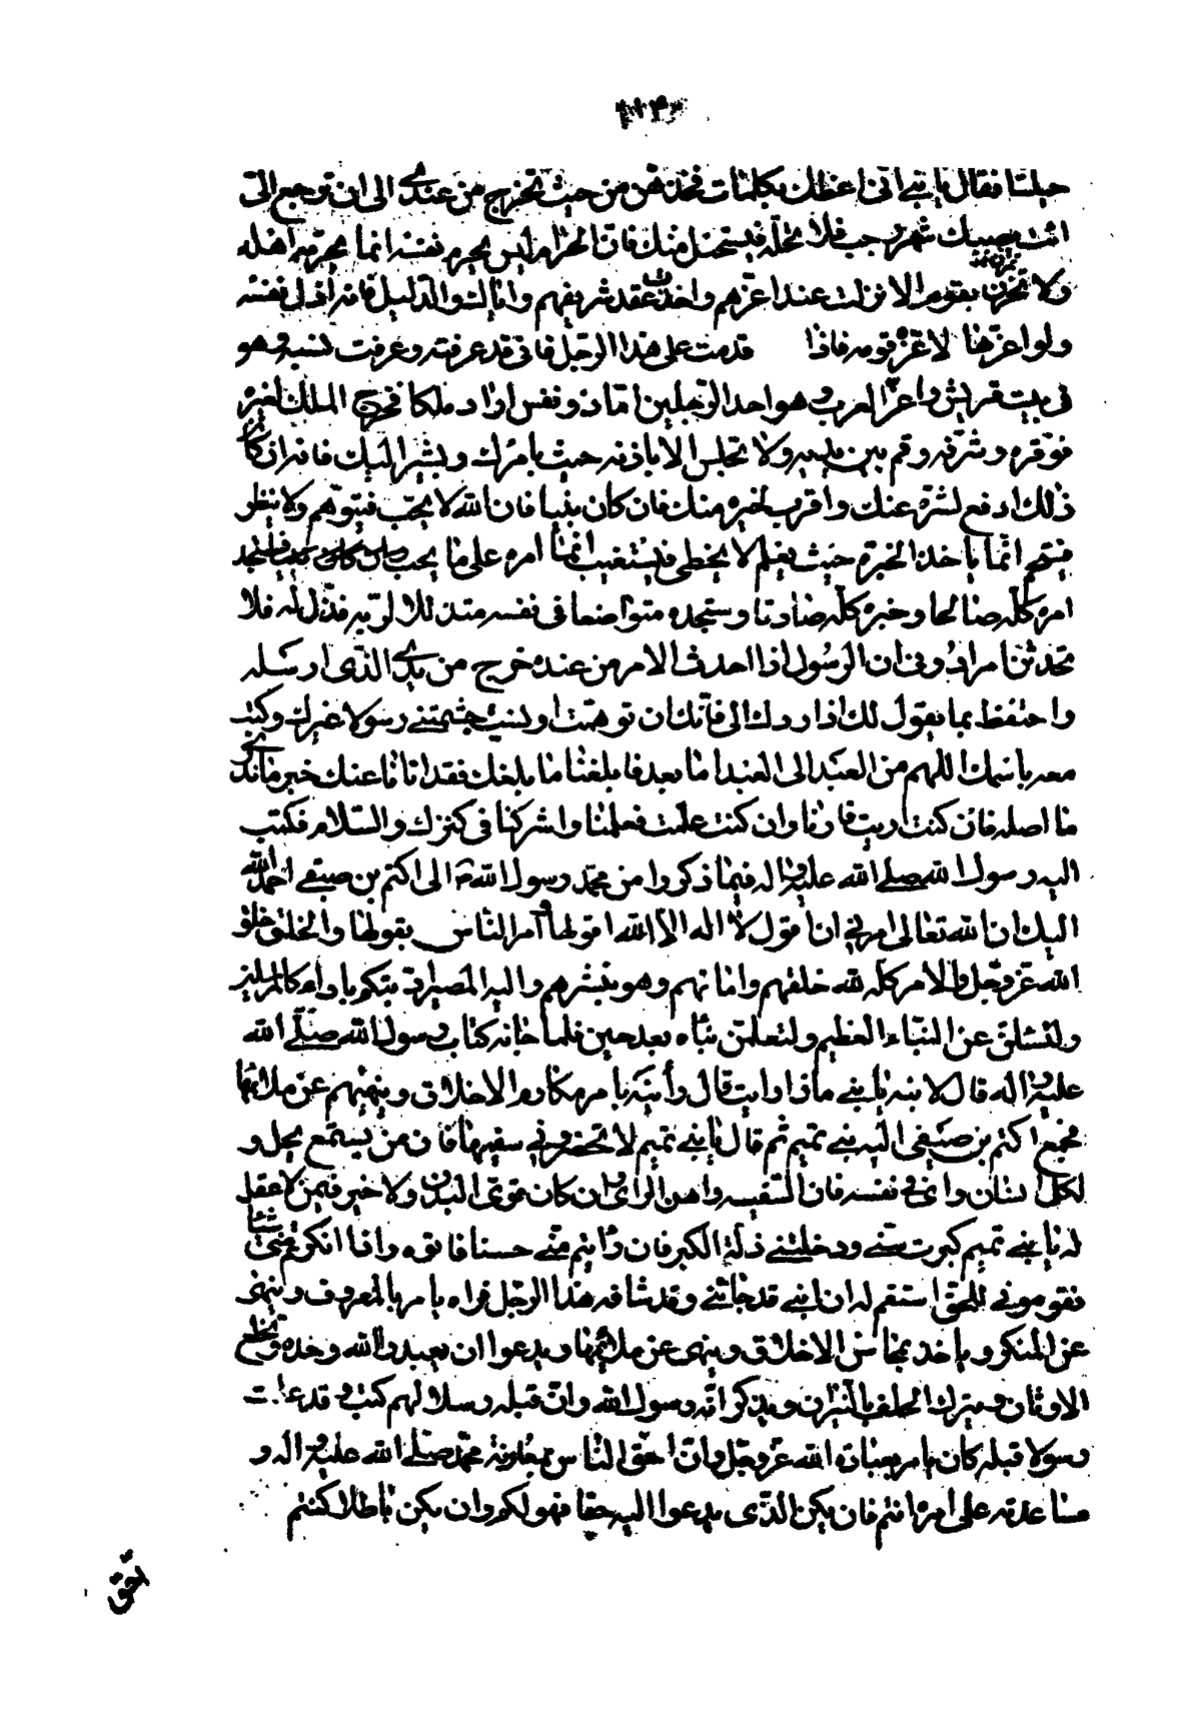 حبلشا فقال يا بني انى اعظك بكلمات فخذهن من حيث تخرج من عندى الى ان ترجع الى
ائت نصيبك شهر رجب فلا تحلّه فيستحل منك فان الحرام ليس يحرم نفسه انما يحرمه اهله
ولا تمرن بقوم الا نزلت عند اعزهم واحدث عقد شريفهم واياك والذليل فانه اذل نفسه
ولو اعزها لاعزه قومه فاذا قدمت على هذا الرجل فانى قد عرفته وعرفت نسبه وهو
فى بيت قريش واعز العرب وهو احد الرجلين اما ذو نفس اراد ملكا فخرج الملك لعزه
فوقره وشرفه وقم بين يديه ولا تجلس الا باذنه حيث يامرك ويشير اليك فانه ان كان
ذلك ادفع لشره عنك واقرب لخيره منك فان كان نبيا فان الله لا يحب فيتوهم ولا ينظر
فيتم انما ياخذ الخيرة حيث يعلم لا يخطى فيستعيب انما امره على ما يحب فستجد
امره كلّه صالحا وخبره كلّه صادقا وستجده متواضعا فى نفسه متذللا لربه فذل له فلا
تحدثن امرا دونى ان الرسول اذا احدث الامر من عنده خرج من يدى الذى ارسله
واحتفظ بما يقول لك اذا ردك الى فانك ان توهمت او نسيت جشمتنى رسولا غيرك وكتب
معه باسمك اللهم من العبد الى العبد اما بعد فابلغنا ما بلغك فقد اتانا عنك خبر ما ندرى
ما اصله فان كنت اريت فارنا وان كنت علمت فعلمنا واشركنا فى كنزك والسلام فكتب
اليه رسول الله صلى الله عليه واله فيما ذكروا من محمد رسول الله ص الى اكثم بن صيفى احمد الله
اليك ان الله تعالى امرنى ان اقول لا اله الا الله اقولها وامر الناس بقولها والخلق خلق
الله عز وجل والامر كله لله خلقهم واماتهم وهو ينشرهم واليه المصير ادبتكم باداب المرسلين
ولتسئلن عن النباء العظيم ولتعلمن نبأه بعد حين فلما جائه كتاب رسول الله صلى الله
عليه واله قال لابنه يا بنى ماذا رايت قال رأيته يامر بمكارم الاخلاق وينهيهم عن ملائمها
فجمع اكثم بن صيفى اليه بنى تميم ثم قال يا بنى تميم لا تحضرونى سفيها فان من يسمع يخل و
لكل انسان راى فى نفسه فان السفيه واهن الراى وان كان قوى البدن ولا خير فيمن لا عقل
له يا بنى تميم كبرت سنى ودخلتنى ذلة الكبر فان رايتم منى حسنا فاتوه واذا انكرتم منى شيئا
فقومونى للحق استقم له ان ابنى قد جائنى وقد شافه هذا الرجل فراه يامر بالمعروف وينهى
عن المنكر وياخذ بمحاسن الاخلاق وينهى عن ملائمها ويدعوا ان يعبد الله وحده وتخلع
الاوثان ويترك الحلف بالنيران ويذكر انه رسول الله وان قبله رسلا لهم كتب وقد علمت
رسولا قبله كان يامر بعبادة الله عز وجل وان احق الناس بمعاونة محمد صلى الله عليه واله و
مساعدته على امره انتم فان يكن الذى يدعوا اليه حقا فهو لكم وان يكن باطلا كنتم
احق